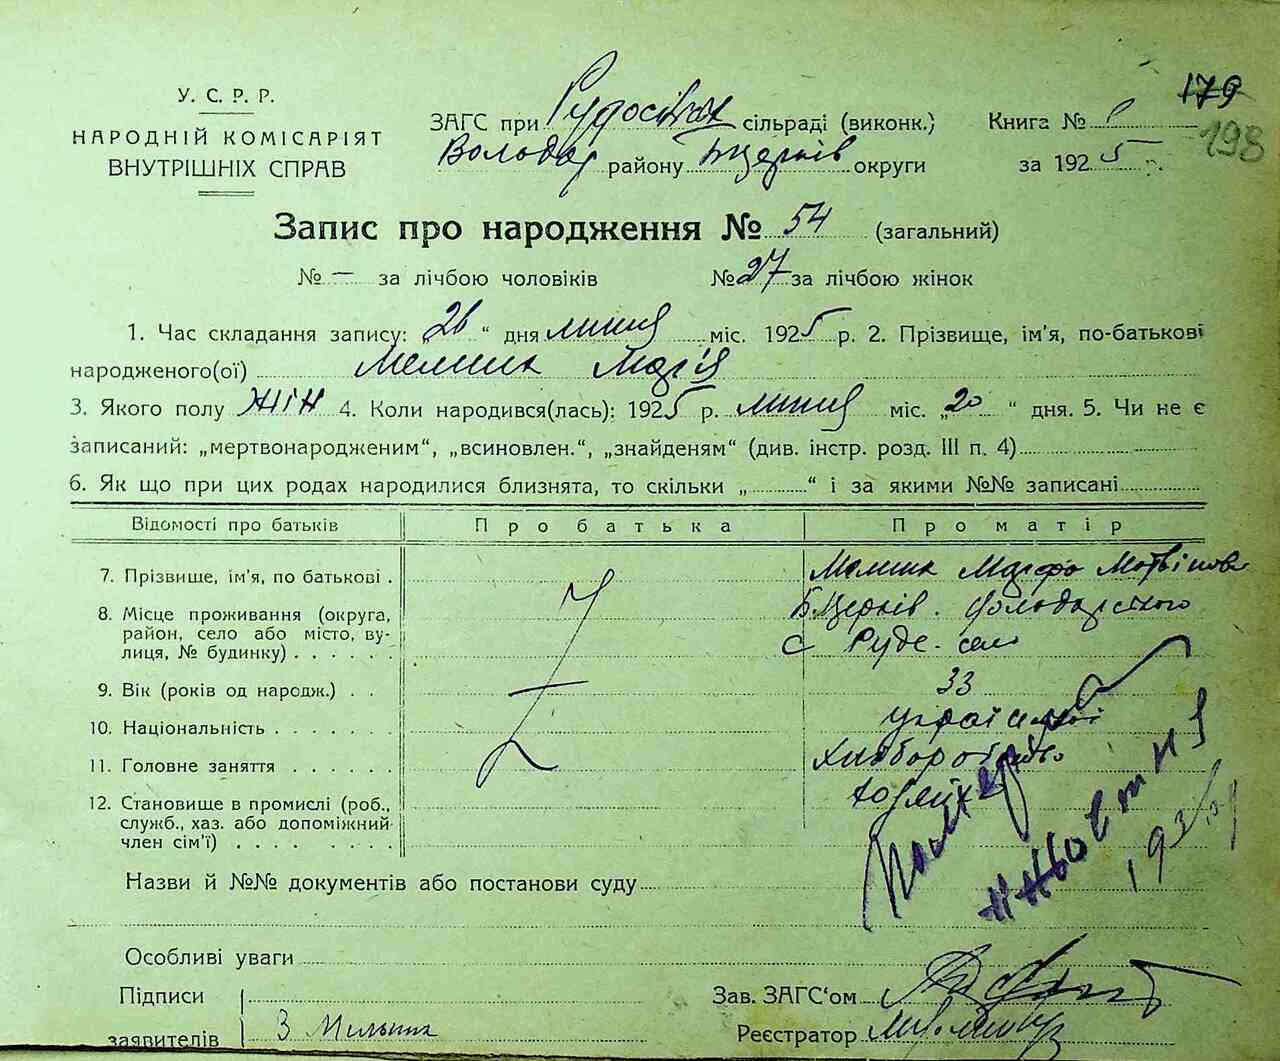 179
198
У. С. Р. Р.
НАРОДНІЙ КОМІСАРІЯТ
ВНУТРІШНІХ СПРАВ
ЗАГС при Рудосільск сільраді (виконк.) Книга №
Володар району Бцерків округи за 1925 р.
Запис про народження № 54 (загальний)
№ — за лічбою чоловіків № 27 за лічбою жінок
1. Час складання запису: „26“ дня липня міс. 1925 р. 2. Прізвище, ім’я, по-батькові
народженого(ої) Мельник Марія
3. Якого полу жін 4. Коли народився(лась): 1925 р. липня міс. „20“ дня. 5. Чи не є
записаний: „мертвонародженим“, „всиновлен.“, „знайденям“ (див. інстр. розд. III п. 4)
6. Як що при цих родах народилися близнята, то скільки „ “ і за якими №№ записані
Відомості про батьків Про батька Про матір
7. Прізвище, ім’я, по батькові . Мельник Марфа Матвіівна
8. Місце проживання (округа, район, село або місто, вулиця, № будинку) . . . . . . Б.Церків. Володарського
с Руде-село
9. Вік (років од народж.) . . 33
10. Національність . . . . . . .
11. Головне заняття . . . . . . Хліборобство
12. Становище в промислі (роб., служб., хаз. або допоміжний член сім’ї) . . . . . . . .
193
Назви й №№ документів або постанови суду
Особливі уваги
Підписи Зав. ЗАГС‘ом
заявителів З Мельник Реєстратор